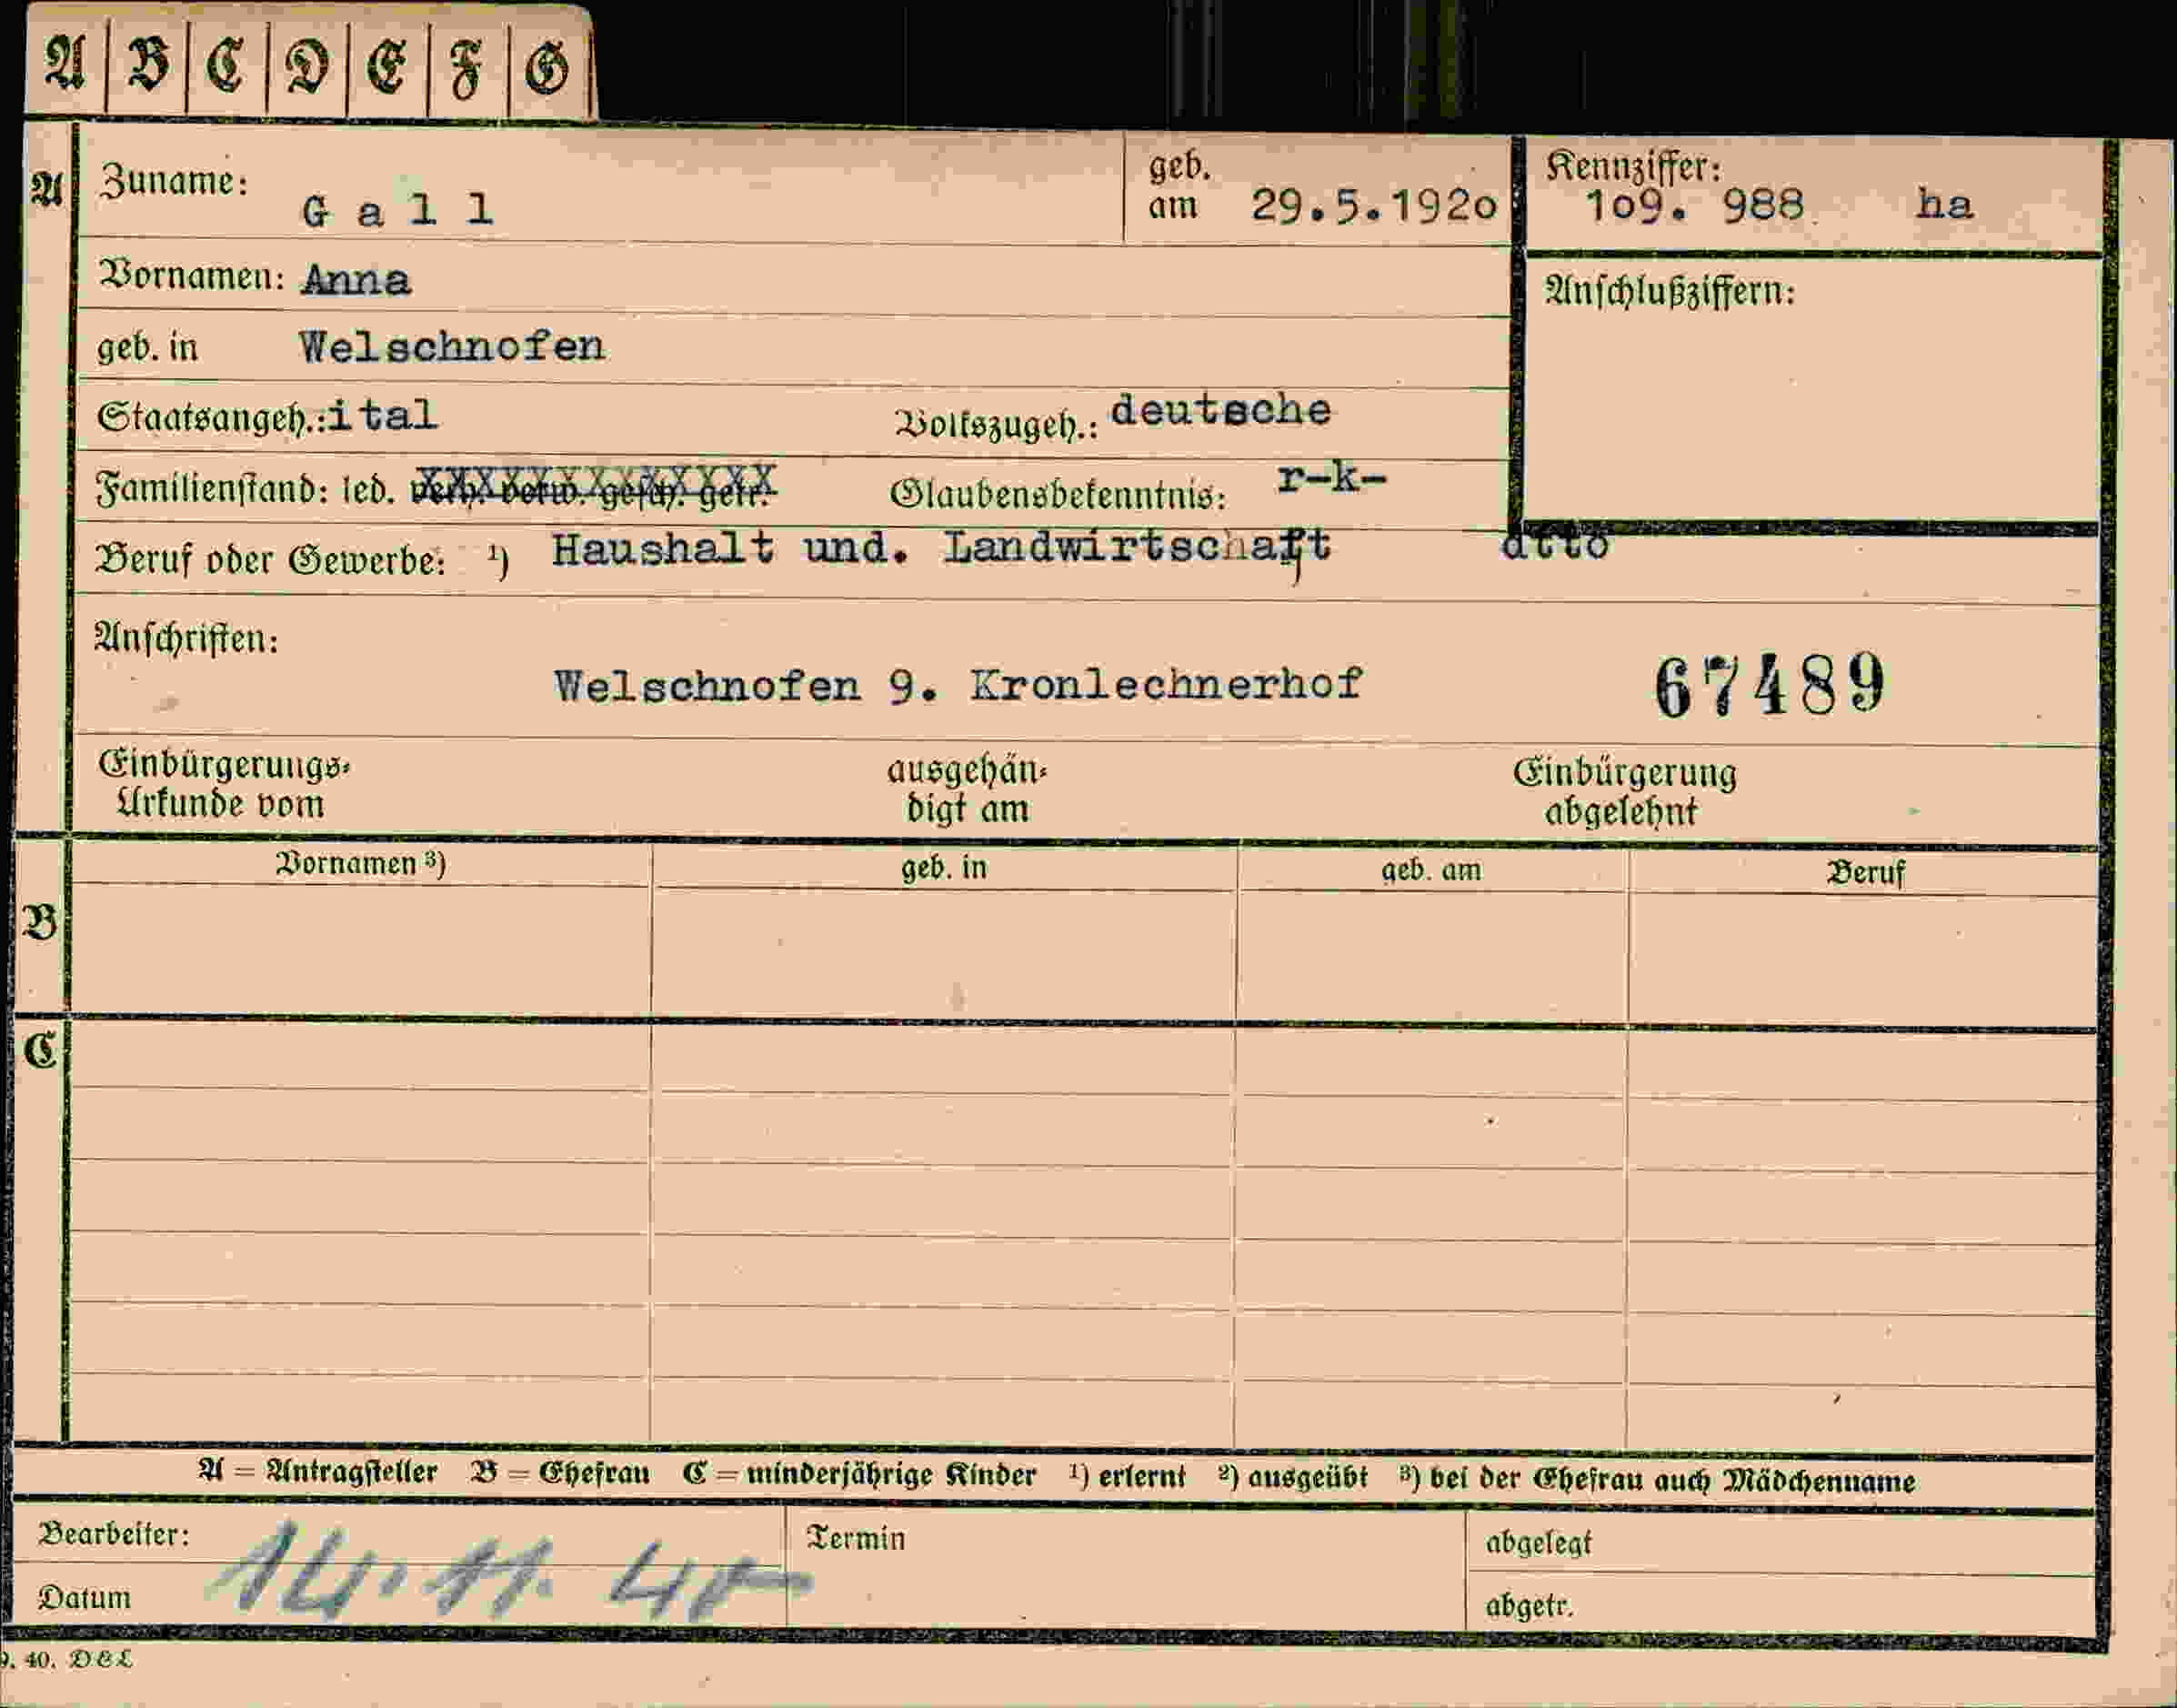 A B C D E F G
A Zuname: Gall geb. am 29.5.192o Kennziffer: 1o9. 988 ha
Vornamen: Anna Anschlußziffern:
geb. in Welschnofen
Staatsangeh.: ital Volkszugeh.: deutsche
Familienstand: led. verh. verw. gesch. getr. Glaubensbekenntnis: r-k-
Beruf oder Gewerbe: ¹) Haushalt und. Landwirtschaft dtto
Anschriften:
Welschnofen 9. Kronlechnerhof 67489
Einbürgerungs- ausgehän- Einbürgerung
Urkunde vom digt am abgelehnt
Vornamen ³) geb. in geb. am Beruf
B
C
A = Antragsteller B = Ehefrau C = minderjährige Kinder ¹) erlernt ²) ausgeübt ³) bei der Ehefrau auch Mädchenname
Bearbeiter: Termin abgelegt
Datum 14. 11. 40 abgetr.
9. 40. DEL